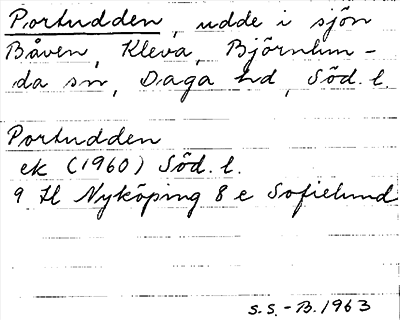 Portudden, udde i sjön
Båven, Kleva, Björnlun-
da sn, Daga hd, Söd. l.
Portudden
ek (1960) Söd. l.
9 H Nyköping 8 e Sofielund
S.S.-B. 1963